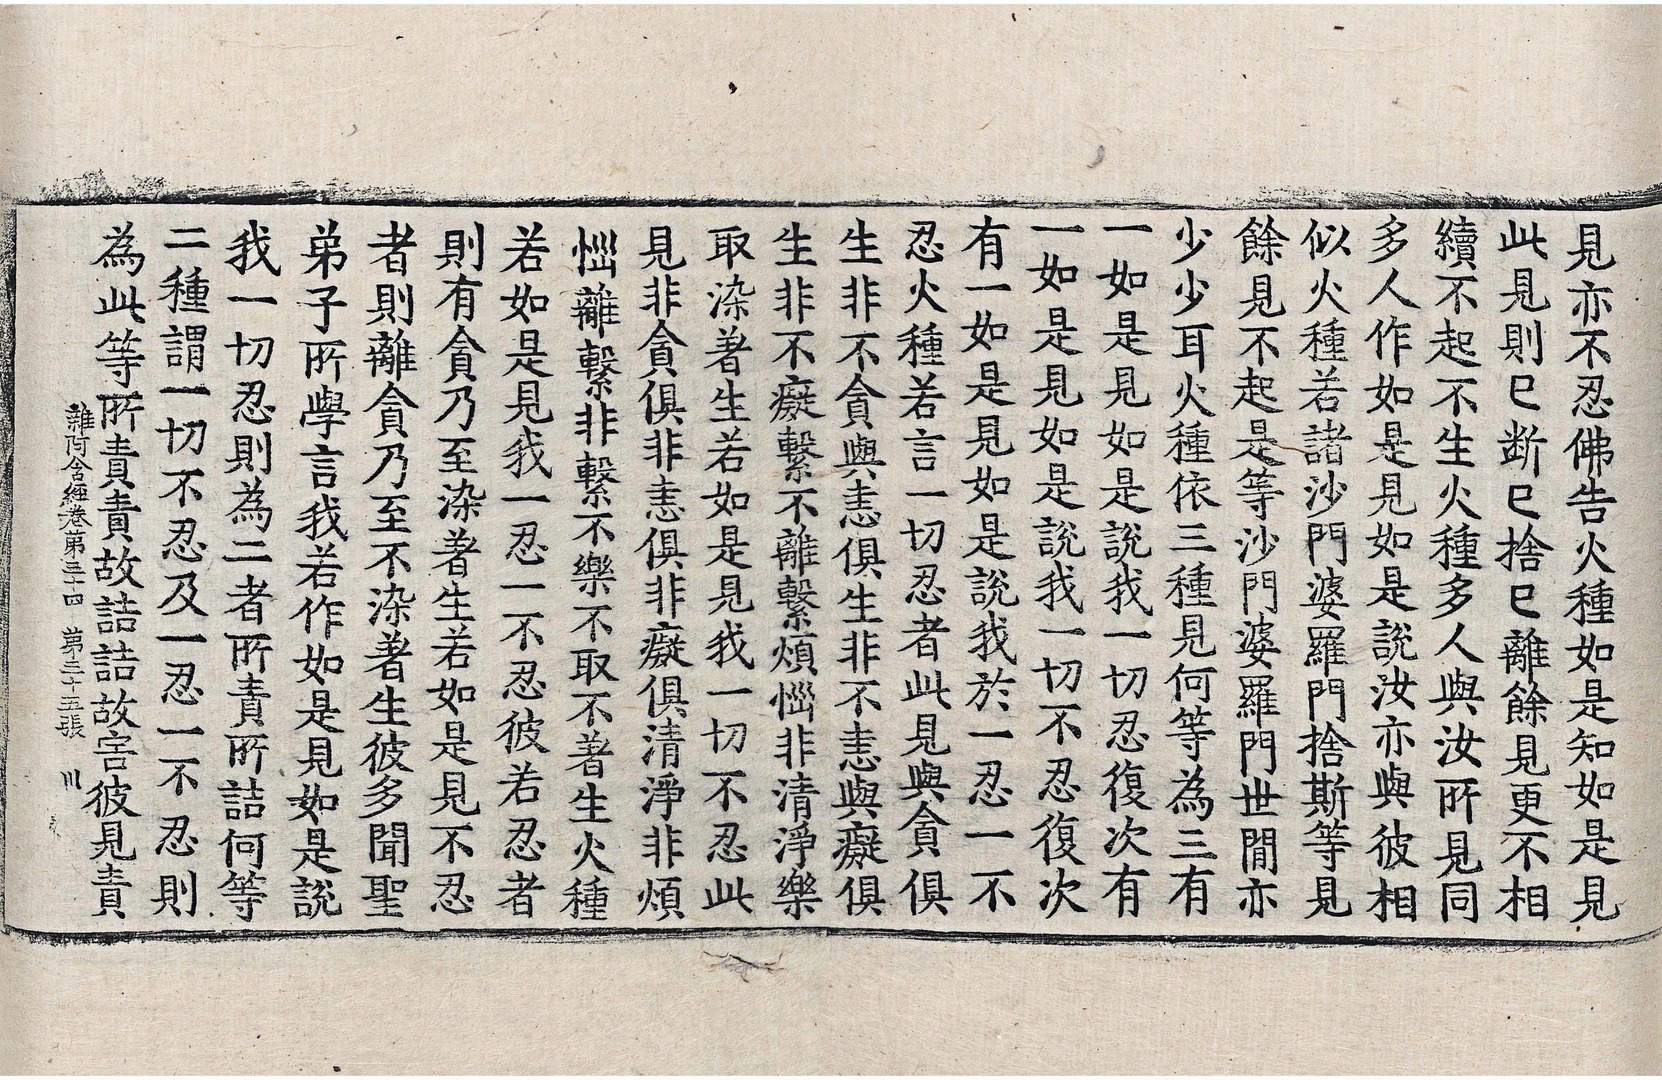 見亦不忍佛告火種如是知如是見
此見則已断已捨已離餘見更不相
續不起不生火種多人與汝所見同
多人作如是見如是說汝亦與彼相
似火種若諸沙門婆羅門捨斯等見
餘見不起是等沙門婆羅門世閒亦
少少耳火種依三種見何等為三有
一如是見如是說我一切忍復次有
一如是見如是說我一切不忍復次
有一如是見如是說我於一忍一不
忍火種若言一切忍者此見與貪俱
生非不貪與恚俱生非不恚與癡俱
生非不癡繫不離繫煩惱非清淨樂
取染著生若如是見我一切不忍此
見非貪俱非恚俱非癡俱清淨非煩
惱離繫非繫不樂不取不著生火種
若如是見我一忍一不忍彼若忍者
則有貪乃至染著生若如是見不忍
者則離貪乃至不染著生彼多聞聖
弟子所學言我若作如是見如是說
我一切忍則為二者所責所詰何等
二種謂一切不忍及一忍一不忍則
為此等所責責故詰詰故害彼見責
雜阿含經卷第三十四 第三十五張 川